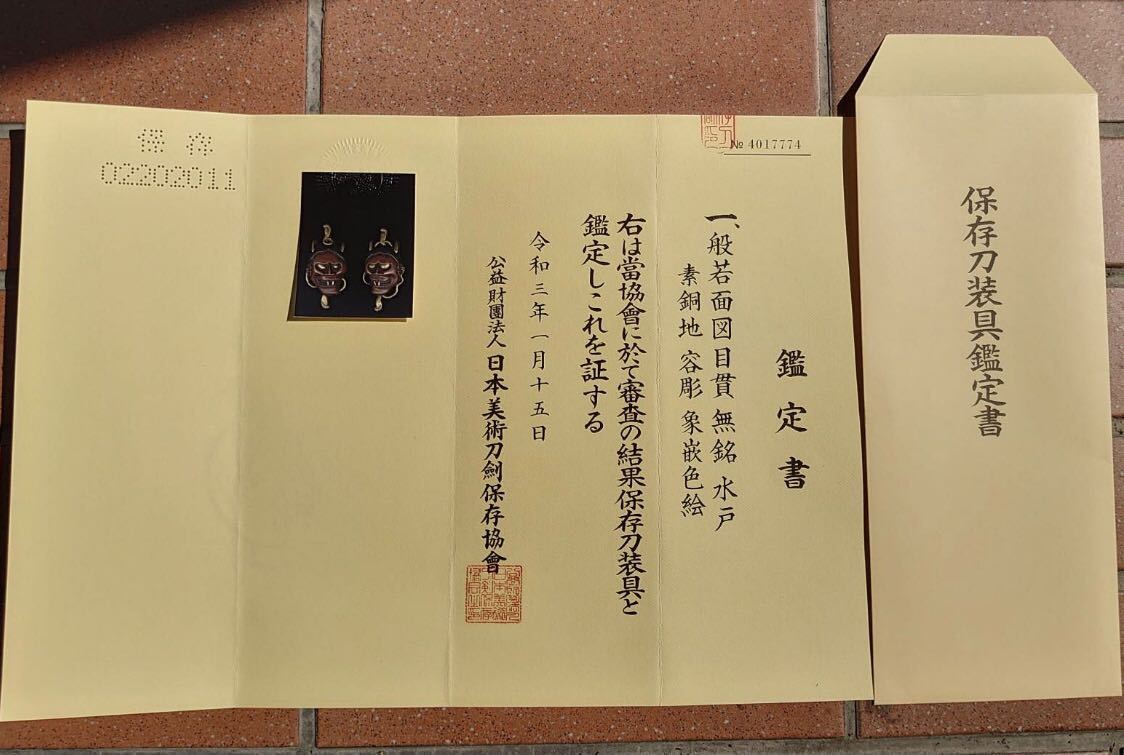 保存刀装具鑑定書
№ 4017774
鑑定書
一、般若面図目貫 無銘 水戸
素銅地 容彫 象嵌色絵
右は當協會に於て審査の結果保存刀装具と
鑑定しこれを証する
令和三年一月十五日
公益財團法人 日本美術刀劍保存協會
保存
02202011